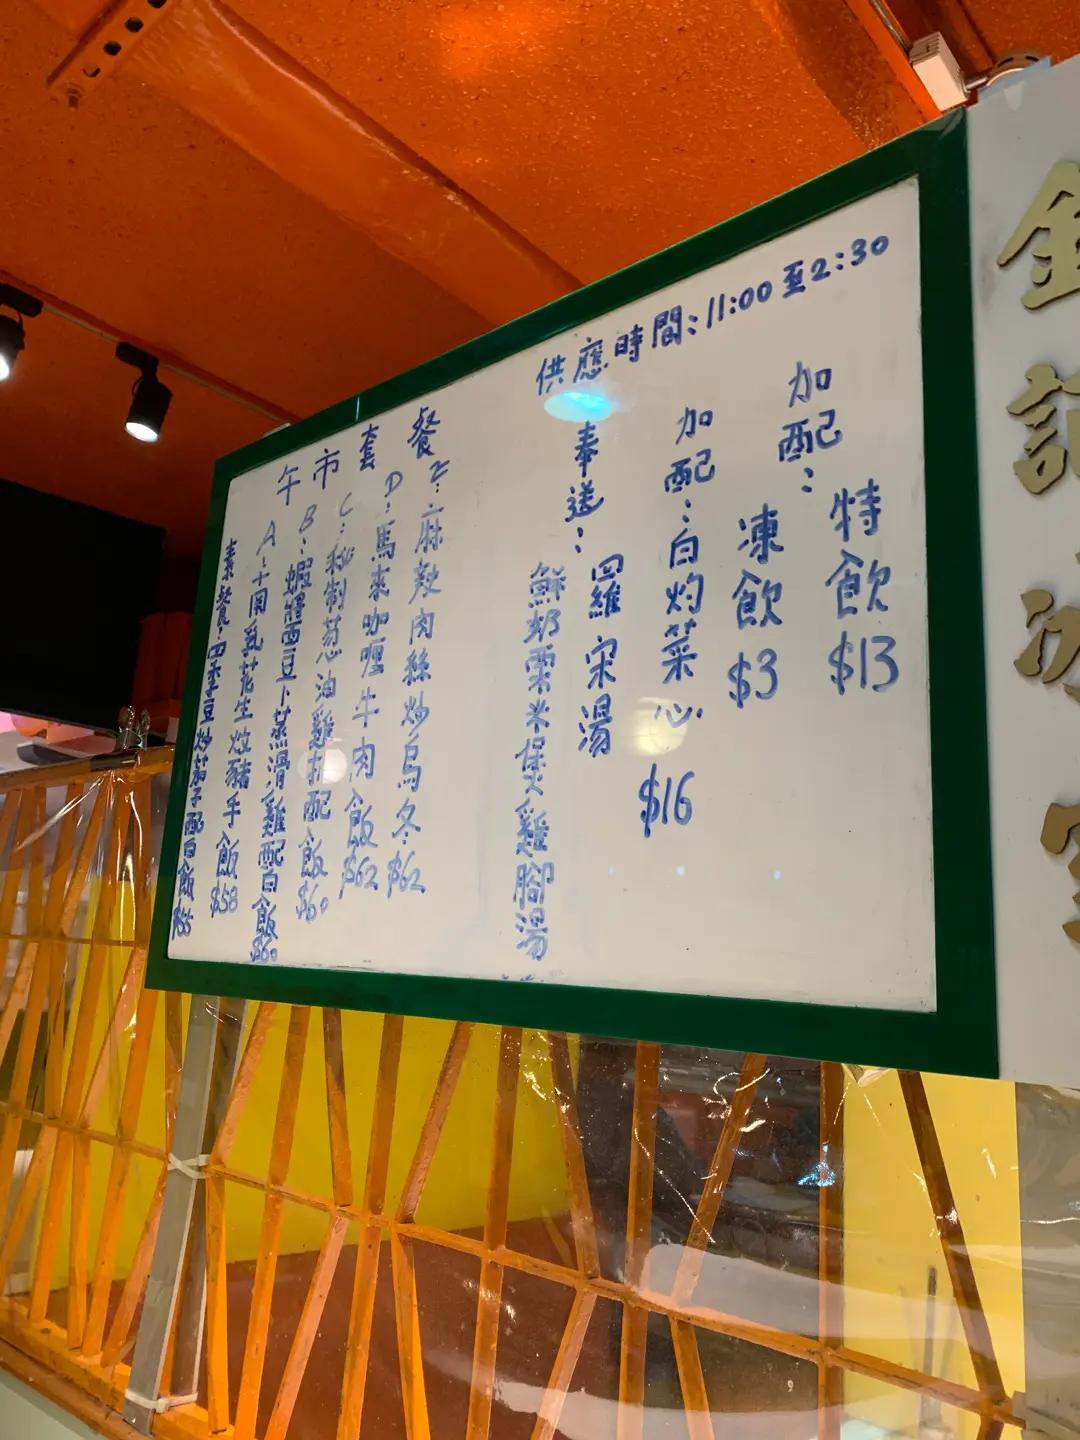 供應時間:11:00至2:30
午市套餐
素餐:四季豆炒茄子配白飯$55
A:十南乳花生炆豬手飯$58
B:蝦醬西豆卜蒸滑雞配白飯$60
C:秘制葱油雞扒配飯$60
D:馬來咖喱牛肉飯$62
E:麻辣肉絲炒烏冬$62
奉送:羅宋湯
鮮奶粟米煲雞腳湯
加配:白灼菜心$16
加配:
凍飲$3
特飲$13
金記冰室